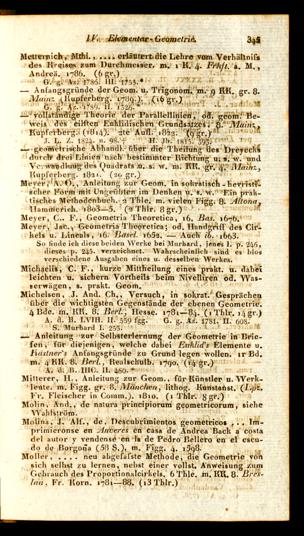 IV. Elementar-Geometrie. 345
Metternich, Mthi., .... erläutert die Lehre vom Verhältniß
des Kreises zum Durchmesser. m. 1 K. 4. Frkft. a. M.,
Andreä. 1786. (6 gr.)
G. g. Az. 1786. III. 1755.
— Anfangsgründe der Geom. u. Trigonom. m. 9 KK. gr. 8.
Mainz (Kupferberg. 1789.). (16 gr.)
G. g. Az. 1789. II.
— vollständige Theorie der Parallellinien, od. geom. Be-
weis des eilften Euklidischen Grundsatzes; 8. Mainz,
Kupferberg. (1814). 2te Aufl. 1822. (9 gr.)
J. L. Z. 1824. n. H. Jb. 1815. 395.
— geometrische Abhandl. über die Theilung des Dreyecks
durch drei Linien nach bestimmter Richtung u. s. w. und
Verwandlung des Quadrats u. s. w. m. KK. gr. 4. Mainz,
Kupferberg. 1821. (20 gr.)
Meyer, A. O., Anleitung zur Geom. in sokratisch-hevristi-
scher Form mit Ungeübten im Denken u. s. w. Ein prak-
tisches Methodenbuch. 2 Thle. m. vielen Figg. 8. Altona,
Hammerich. 1803—5. (2 Thlr. 8 gr.)
Meyer, C. F., Geometria Theoretica. 16. Bas. 1676.
Meyer, Jak., Geometria Theoretica; od. Handgriff des Cir-
kels u. Lineals, 16. Basel. 1692. — Auch ib. 1663.
So finde ich diese beiden Werke bei Murhard, jenes I. p. 246,
dieses p. 245. verzeichnet. Wahrscheinlich sind es blos
verschiedene Ausgaben eines u. desselben Werkes.
Michaelis, C. F., kurze Mittheilung eines prakt. u. dabei
leichten u. sichern Vortheils beim Nivelliren od. Was-
serwägen, s. prakt. Geom.
Michelsen, J. And. Ch., Versuch, in sokrat. Gesprächen
über die wichtigsten Gegenstände der ebenen Geometrie.
4 Bde. m. KK. 8. Berl., Hesse. 1781—83. (1 Thlr. 14 gr.)
A. d. B. LVIII. II. 559 fgg. G. g. Az. 1781. II. 608.
S. Murhard I. 255.
— Anleitung zur Selbsterlernung der Geometrie in Brie-
fen, für diejenigen, welche dabei Euklid's Elemente u.
Kästner's Anfangsgründe zu Grund legen wollen. 1r Bd.
m. 4 KK. 8. Berl., Realschulb. 1790. (14 gr.)
A. d. B. IIIC. II. 450.
Mitterer, H., Anleitung zur Geom. für Künstler u. Werk-
leute. m. Figg. gr. 8. München, lithog. Kunstanst. (Lpz.
Fr. Fleischer in Comm.). 1810. (1 Thlr. 8 gr.)
Molin, And., de natura principiorum geometricorum, siehe
Wahlström.
Molina, J. Alf., de, Descubrimientos geometricos ... Im-
primieronse en Anveres en casa de Andrea Bach a costa
del autor y vendense en la de Pedro Bellero en el escu-
do de Borgoña (58 S.), m. Figg. 4. 1598.
Moller, .... neu abgefaßte Methode, die Geometrie von
sich selbst zu lernen, nebst einer vollst. Anweisung zum
Gebrauch des Proportionalcirkels, 6 Thle. m. KK. 8. Bres-
lau, Fr. Korn. 1781—88. (13 Thlr.)